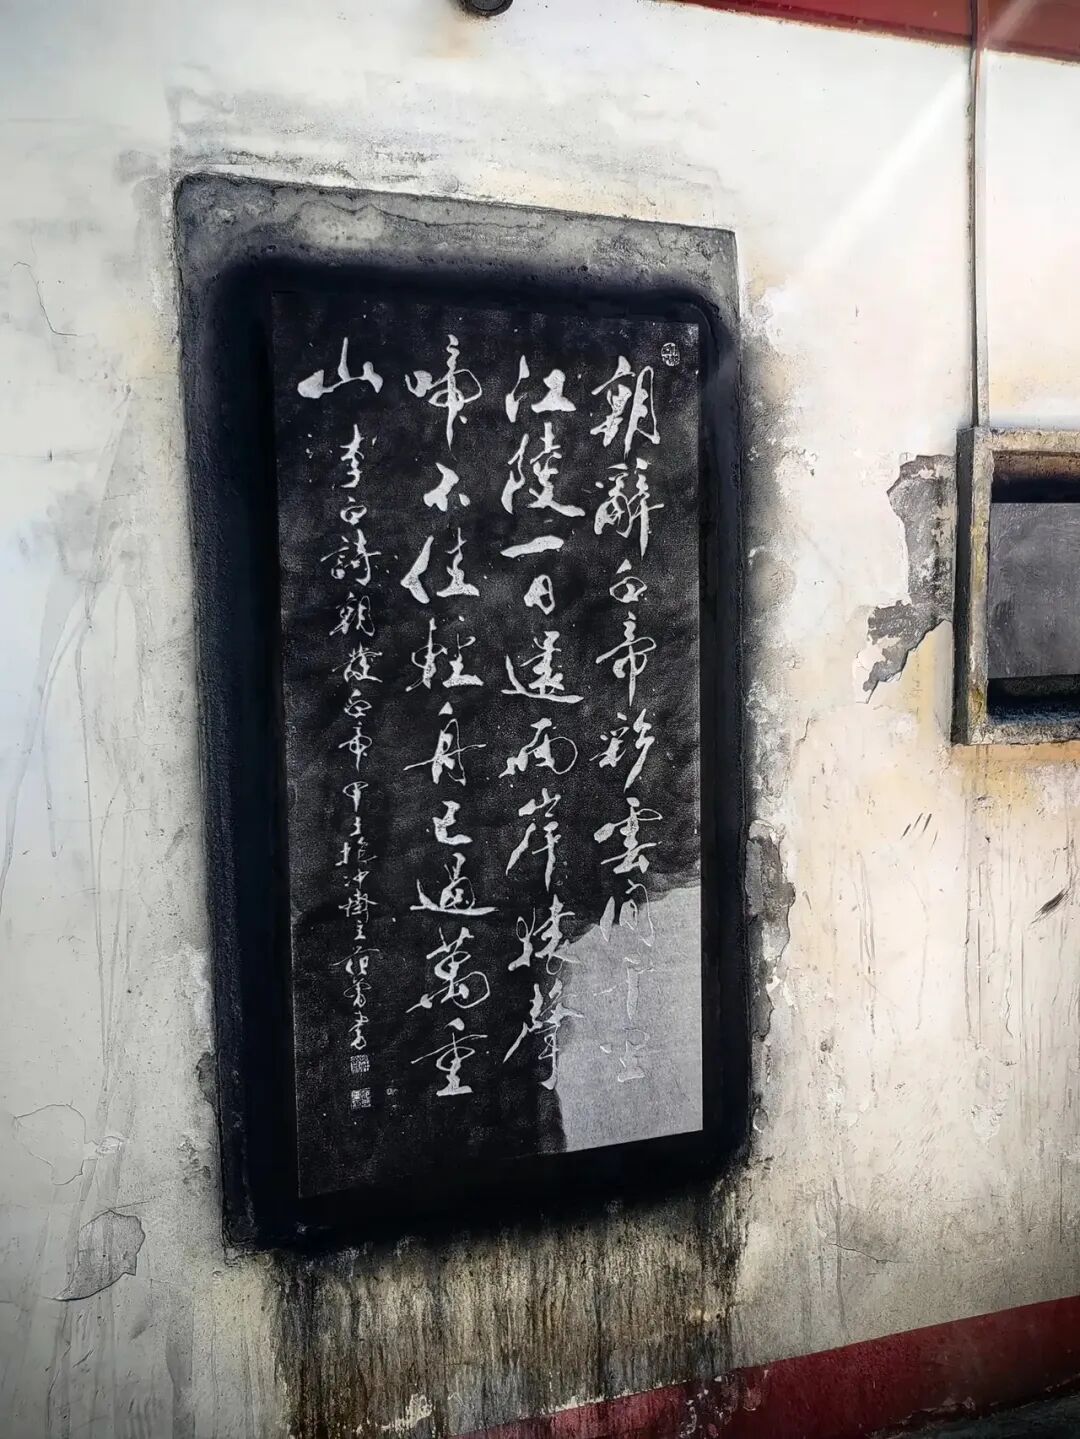 朝辭白帝彩雲間千里
江陵一日還兩岸猿聲
啼不住輕舟已過萬重
山
李白詩朝發白帝甲子抱沖齋主范曾書